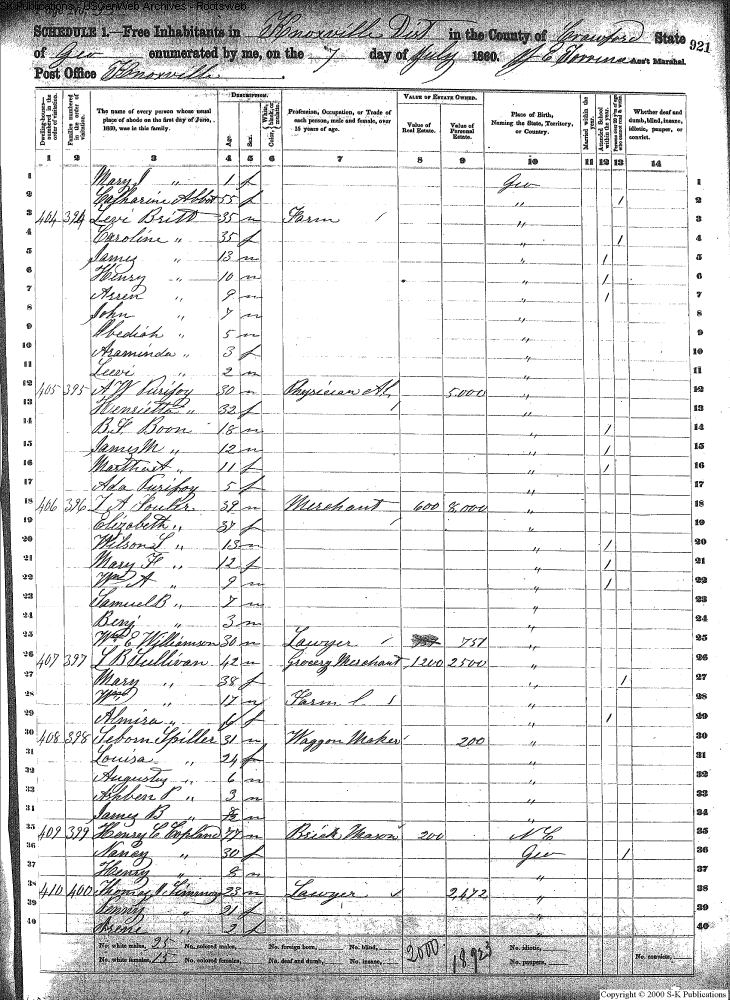 SCHEDULE 1.—Free Inhabitants in Knoxville Dist in the County of Crawford State
of Geo enumerated by me, on the 7 day of July 1860. Ass't Marshal. 921
Post Office Knoxville.
DESCRIPTION. VALUE OF ESTATE OWNED.
Dwelling-houses—numbered in the order of visitation. Families numbered in the order of visitation. The name of every person whose usual place of abode on the first day of June, 1860, was in this family. Age. Sex. Color, White, black, or mulatto. Profession, Occupation, or Trade of each person, male and female, over 15 years of age. Value of Real Estate. Value of Personal Estate. Place of Birth, Naming the State, Territory, or Country. Married within the year. Attended School within the year. Whether deaf and dumb, blind, insane, idiotic, pauper, or convict.
1 2 3 4 5 6 7 8 9 10 11 12 13 14
1 Mary J " 1 f Geo 1
2 Catharine Abbot 55 f " / 2
3 404 394 Levi Britt 35 m Farm / " 3
4 Caroline " 35 f " / 4
5 James " 13 m " / 5
6 Henry " 10 m " / 6
7 " 9 m " / 7
8 John " 7 m " 8
9 Obediah " 5 m " 9
10 Araminda " 3 f " 10
11 Levi " 2 m " 11
12 405 395 A W Purifoy 30 m Physician 5.000 " 12
13 Henrietta " 32 f / " 13
14 B. F. Boon 18 m " / 14
15 James M " 12 m " / 15
16 " 11 f " / 16
17 Ada Purifoy 5 f " 17
18 406 396 39 m Merchant 600 8.000 " 18
19 Elizabeth " 37 f / " 19
20 Wilson L " 13 m " / 20
21 Mary F " 12 f " / 21
22 Wm A " 9 m " / 22
23 Samuel B " 7 m " 23
24 Benj " 3 m " 24
25 Wm E Williamson 30 m Lawyer / 751 " 25
26 407 397 Sullivan 42 m Grocery Merchant 1200 2500 " 26
27 Mary " 38 f " / 27
28 Wm " 17 m Farm L / " 28
29 Almira " 6 f " / 29
30 408 398 Seborn Spiller 31 m Waggon Maker 200 " 30
31 Louisa " 24 f " 31
32 Augustus " 6 m " 32
33 " 3 m " 33
34 James B " m " 34
35 409 399 Henry C Copland 77 m Brick Mason 200 N C 35
36 Nancy " 30 f Geo / 36
37 Henry " 8 m " 37
38 410 400 Thomas Simmons 23 m Lawyer 2,472 " 38
39 " 21 f " 39
40 " 2 f " 40
No. white males, 25 No. colored males, No. foreign born, No. blind, 2000 18.923 No. idiotic,
No. white females, 15 No. colored females, No. deaf and dumb, No. insane, No. paupers, No. convicts,
Copyright © 2000 S-K Publications